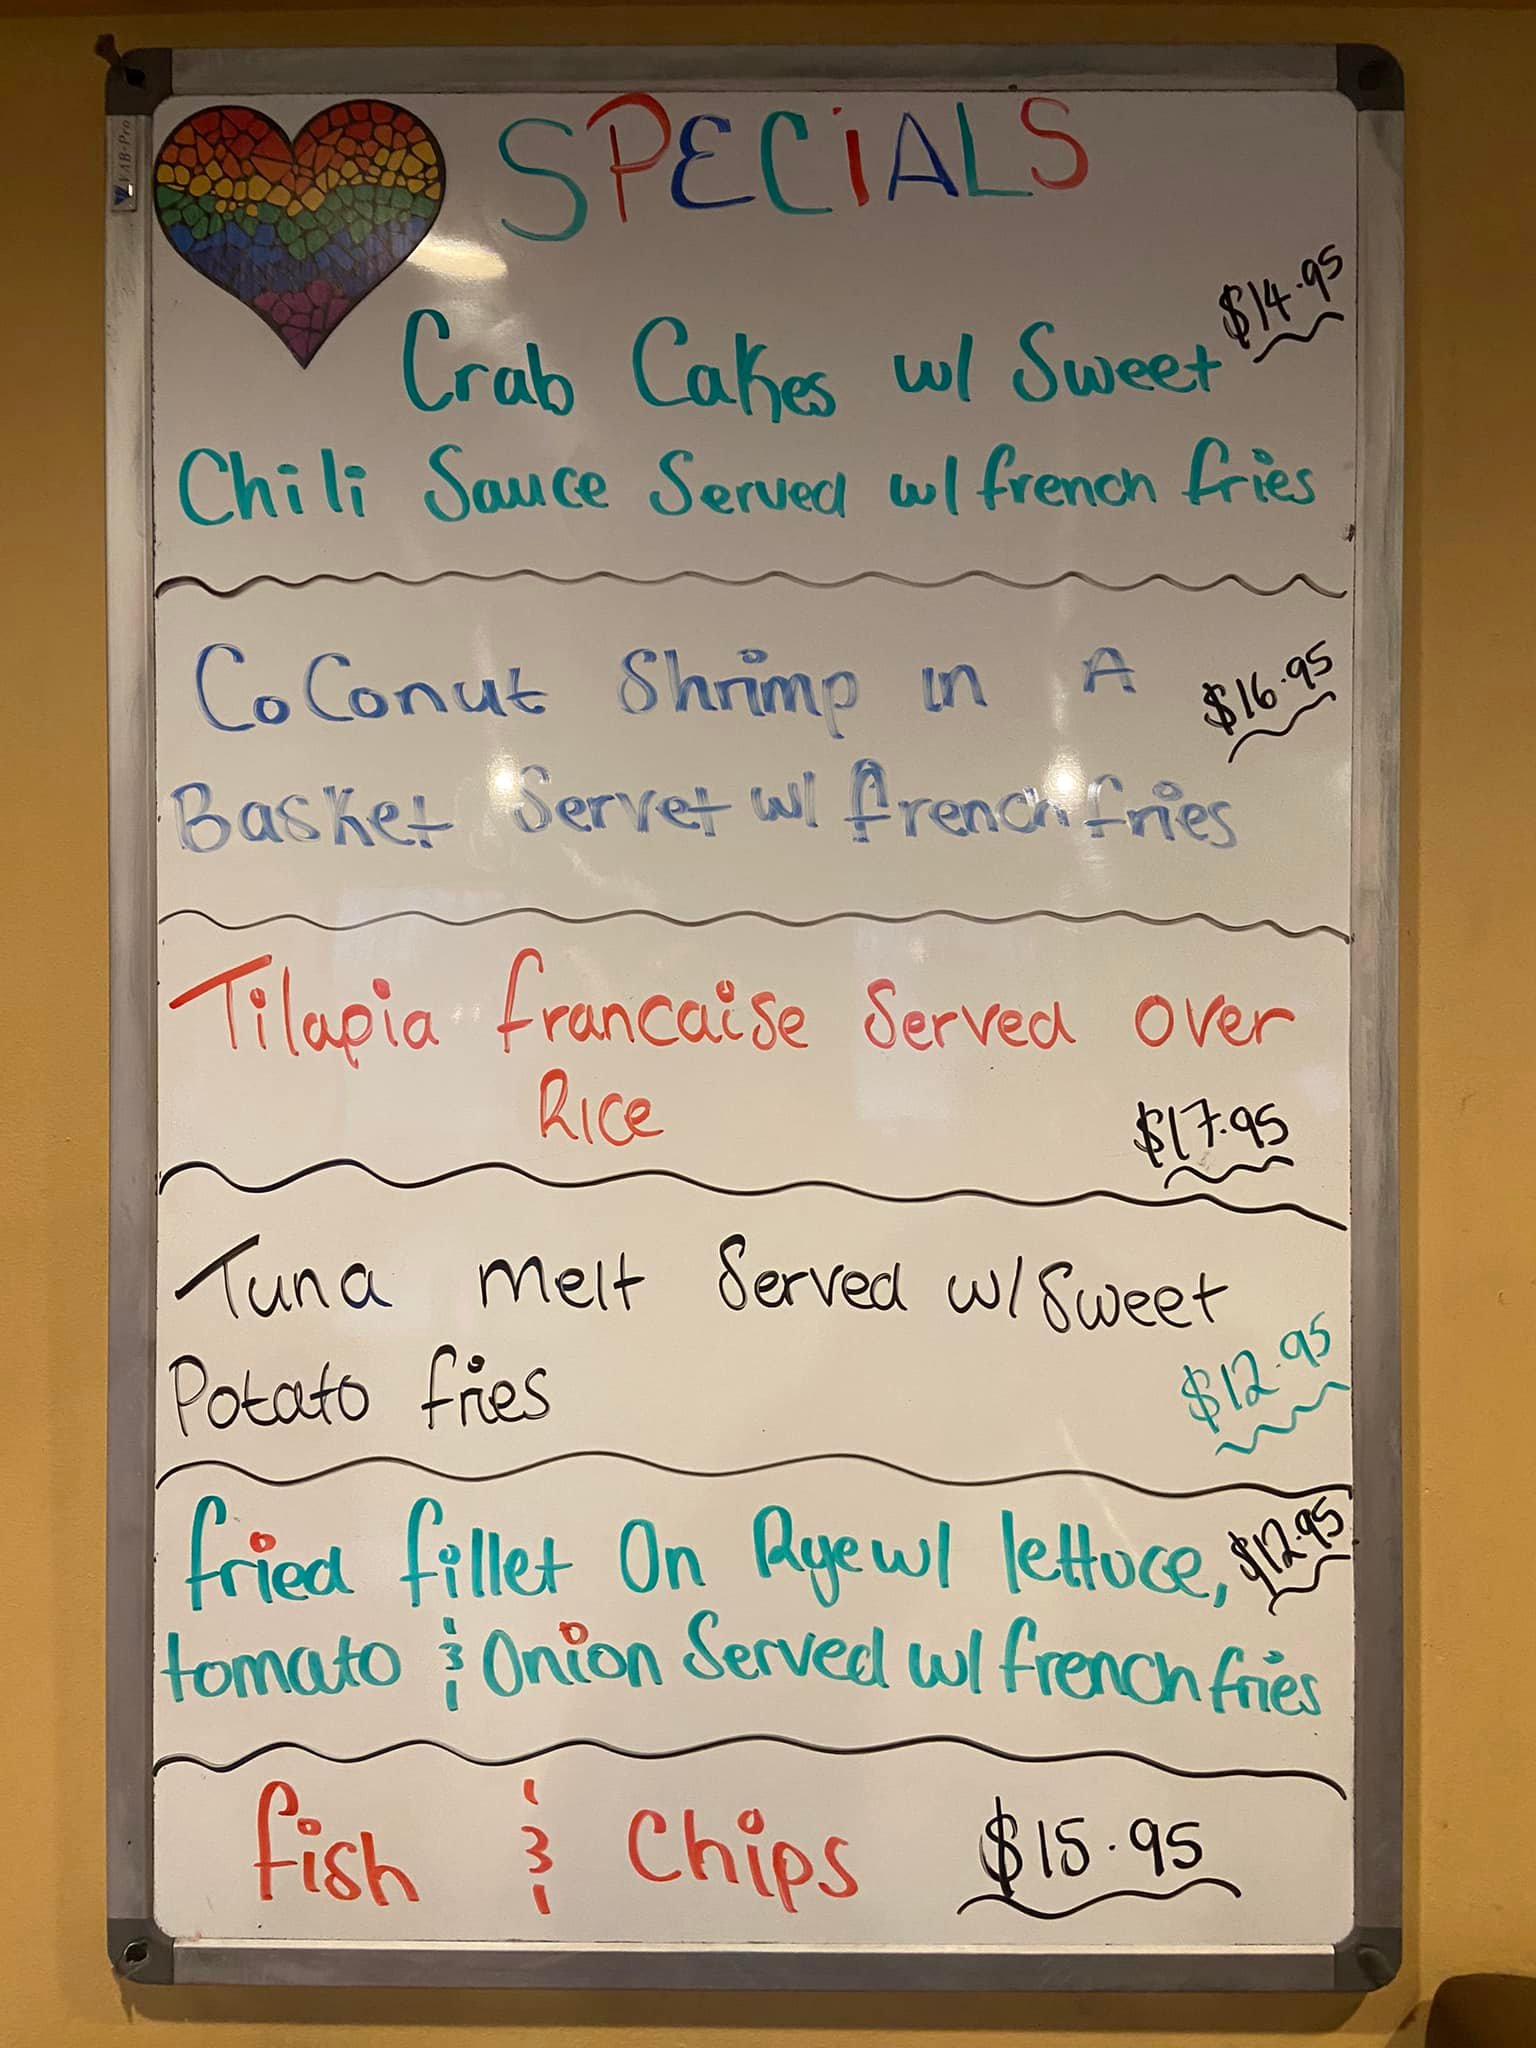 SPECiALS
$14.95
Crab Cakes w/ Sweet
Chili Sauce Served w/ french fries
CoConut Shrimp in A
$16.95
Basket Servet w/ french fries
Tilapia francaise Served over
Rice
$17.95
Tuna melt Served w/ Sweet
Potato fries
$12.95
fried fillet On Rye w/ lettuce,
$12.95
tomato & Onion Served w/ french fries
fish & Chips $15.95